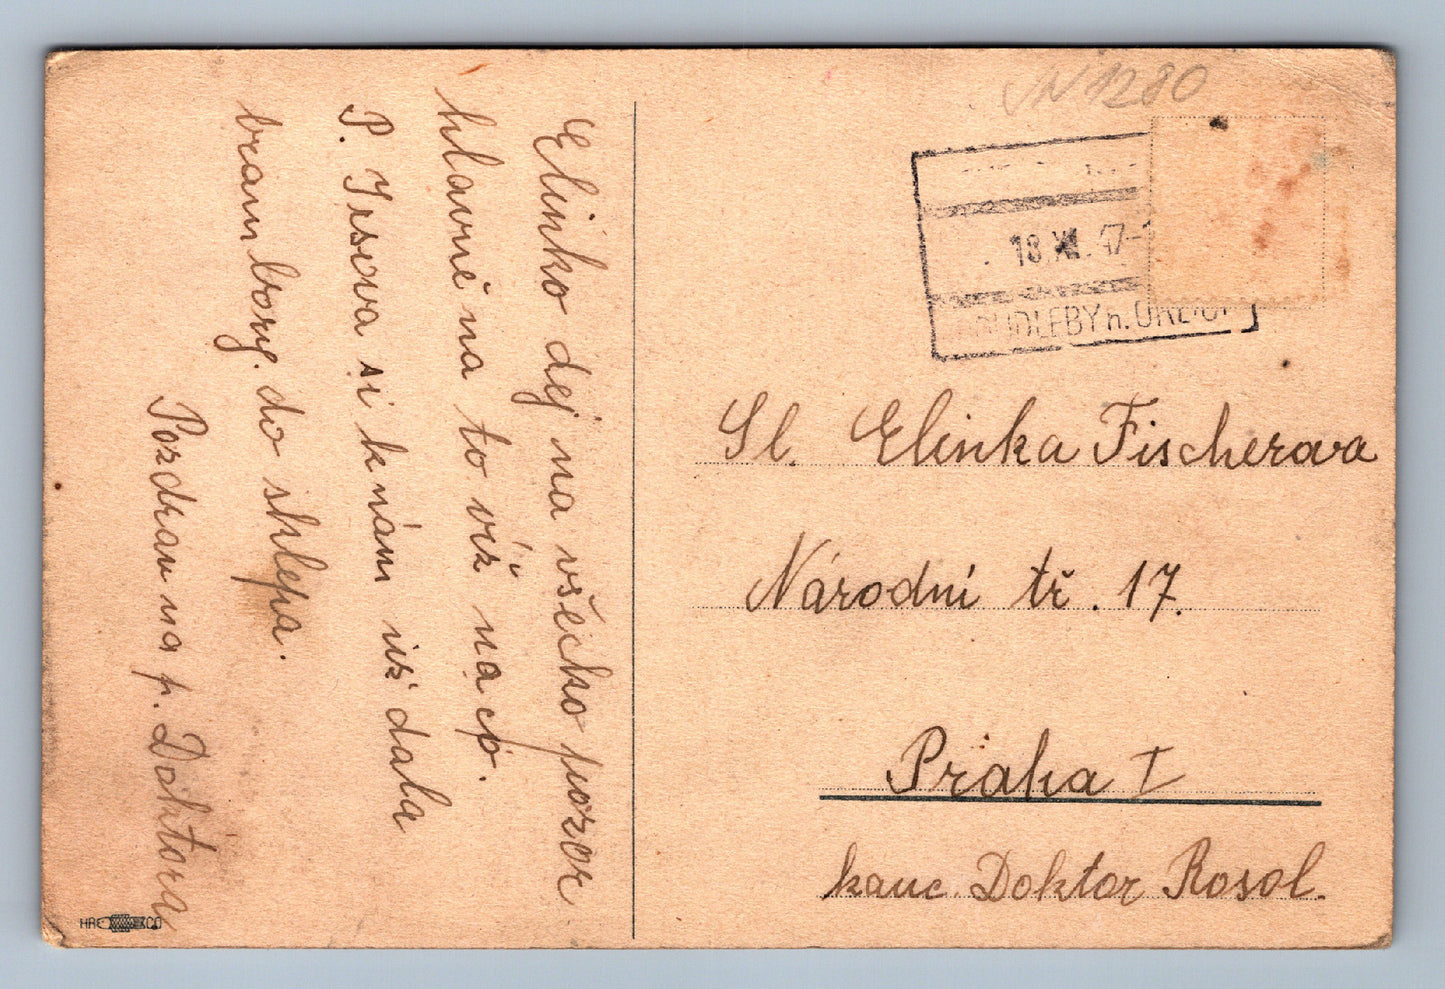 Elinko dej na všecko pozor
hlavně na to víš na co.
P. Irsova si k nám už dala
brambory. do sklepa.
Pozdrav na p. Doktora
VN 1280
18.XI.47-1
OUDLEBY n. ORLICÍ
Sl. Elinka Fischerova
Národní tř. 17.
Praha I
kanc. Doktor Rosol.